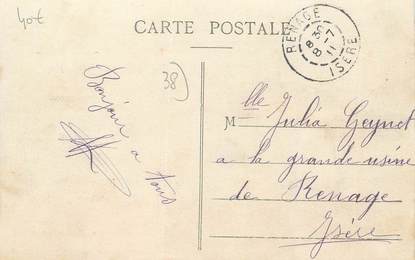 40€
CARTE POSTALE
RENAGE
8 30
8 -7
11
ISÈRE
38
Bonjour a tous
Mlle Julia Geynet
a la grande usine
de Renage
Isère